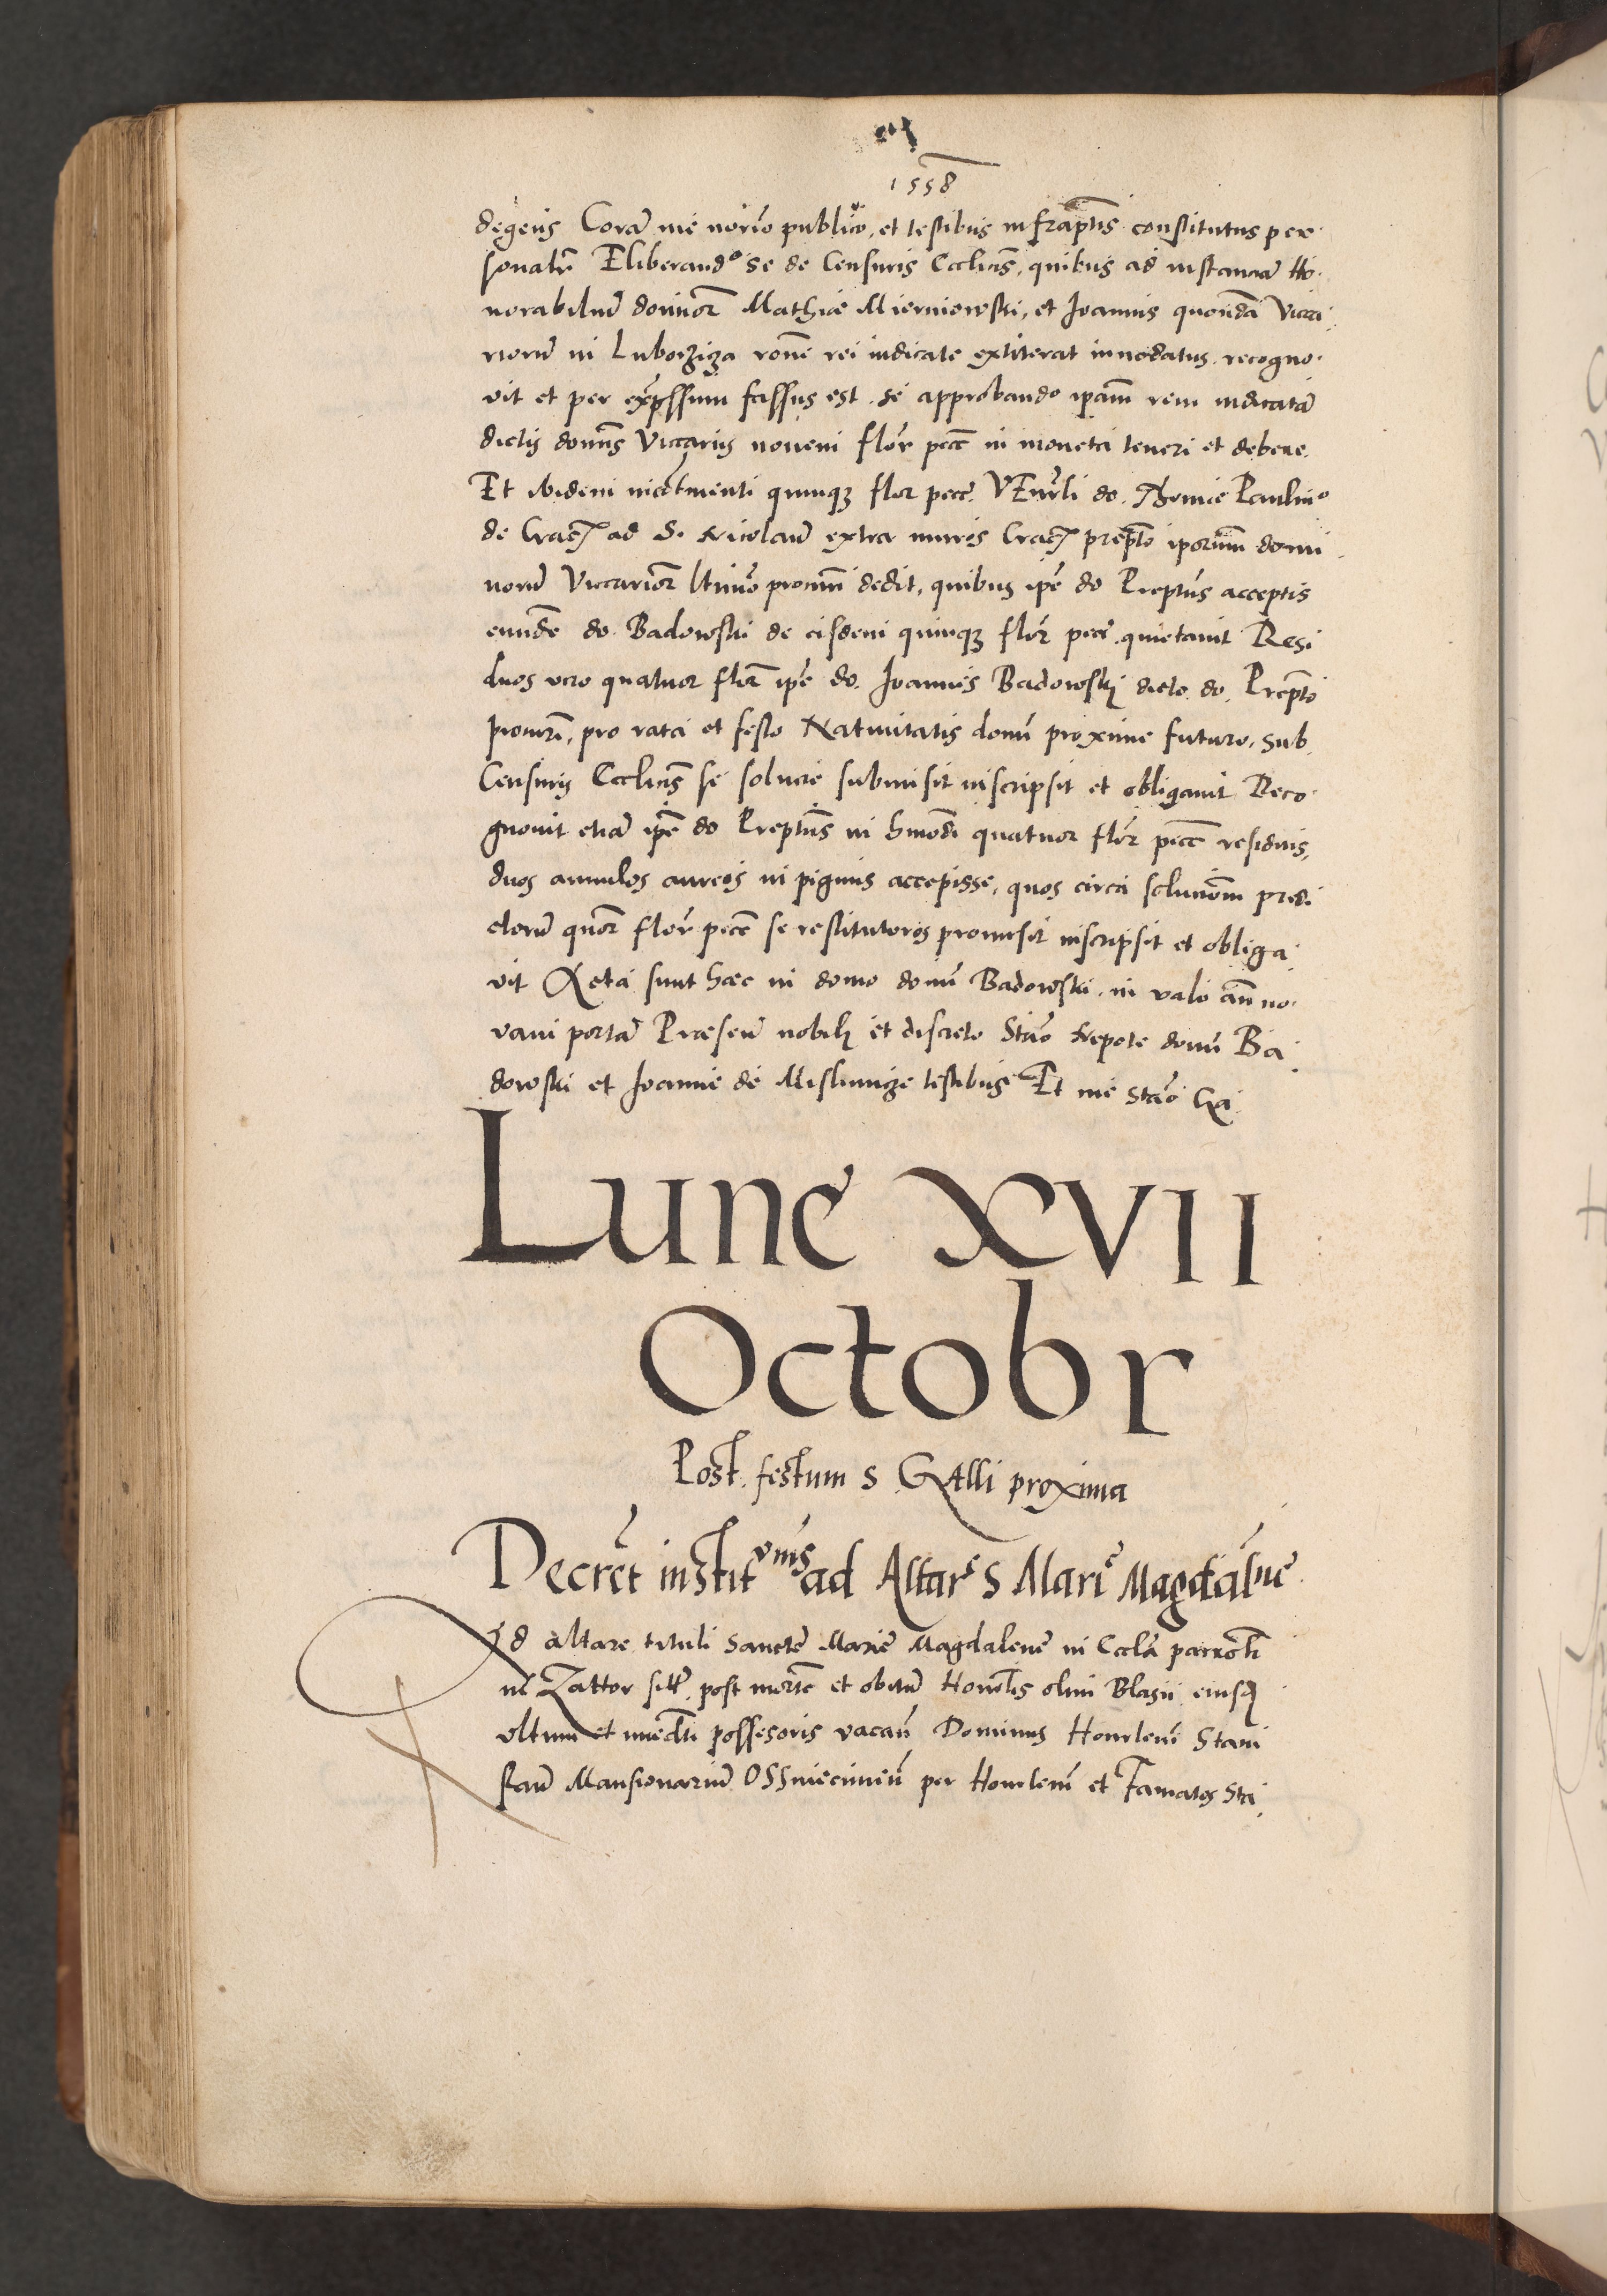 1558
degens Corā me norio publico, et testibus infraptis constitutus per
sonalr Eliberando se de Censuris Ecclicis, quibus ad instanciā Ho
norabiliū dominor Mathie Mierniowski, et Joannis quondā Vicca
riorū in Luborziza rone rei iudicate extiterat innodatus recogno
vit et per expssum fassus est se approbando ipam rem iudicatā
dictis domīs Viccariis novem flor pecc in moneta teneri et debere.
Et ibidem quinqz flor pecc Vēnrli do. Paulino
de Crac ad S. Nicolaū extra muros Crac prepto iporum domi
norū Viccarior procuri dedit, quibus ipe do Preptus acceptis
eunde do Badowski de eisdem quinqz flor pecc quietavit Resi
duos vero quatuor flor ipe do. Joannes Badowski dicto do. Prepto
procuri, pro rata et festo Nativitatis domī proxime futuro, sub
Censuris Ecclicis se solvere submisit inscripsit et obligavit Reco
gnovit etiā ipe do Preptus in hmodi quatuor flor pecc residuis,
duos annulos aureos in pignus accepisse, quos circa solucionem predi
ctorū quor flor pecc se restituturos promisit inscripsit et obliga
vit Acta sunt haec in domo domī Badowski in valo an no
vam portā Praesen nobili et discreto Stao Nepote domī Ba
dowski et Joanne de Mislimicze testibus Et me Stao Ga
Lune XVII
Octobr
Post festum S GAlli proxima
Decret institunis ad Altare S Marie Magdalne
Ad altare tituli sancte Marie Magdalene in Eccla parroli
in Zattor sitū post morte et obitū Honolis olim Blasii eiusdē
ultimi et imedti possesoris vacan Dominus Honrlem Stani
slaū Mansionariū OSswiecimen per Honrlem et Famatos Sta